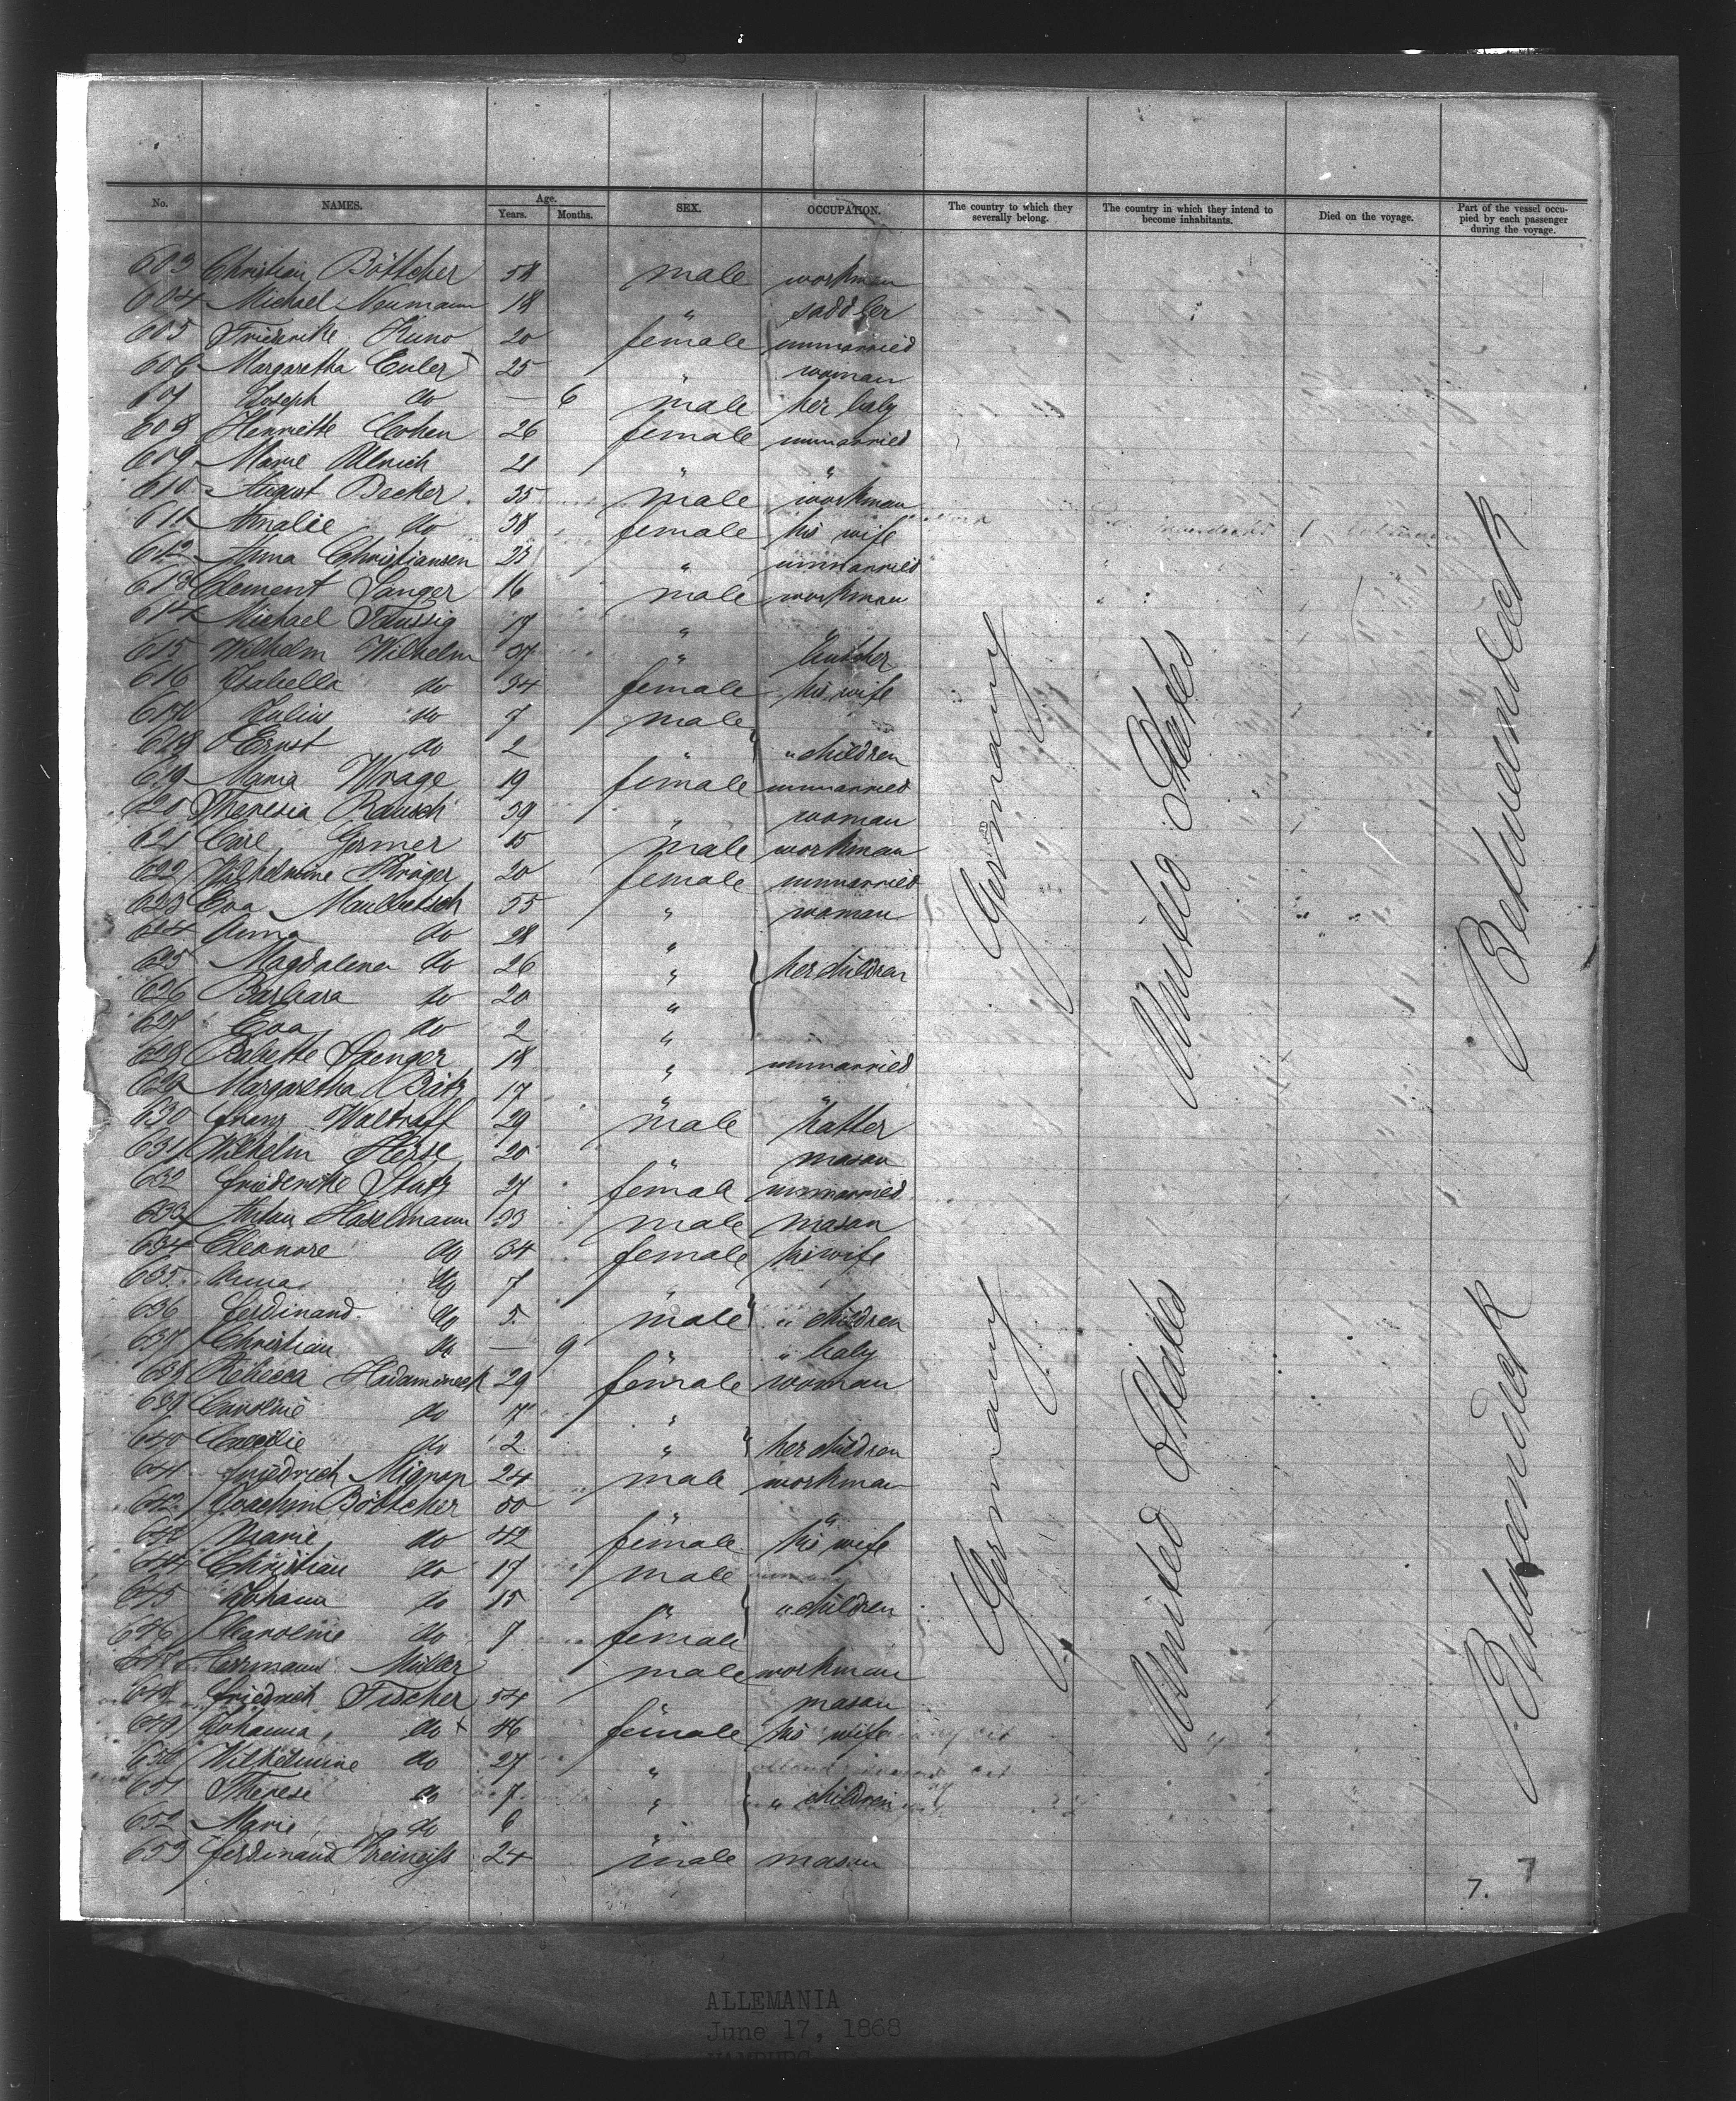 No. NAMES. Age. Years. Months. SEX. OCCUPATION. The country to which they severally belong. The country in which they intend to become inhabitants. Died on the voyage. Part of the vessel occupied by each passenger during the voyage.
603 Christian Böttcher 58 male workman
604 Michael Neumann 18 " saddler
605 Friederike Kuno 20 female unmarried
606 Margaretha Euler 25 " woman
607 Joseph do — 6 male her baby
608 Henriette Cohen 26 female unmarried
609 Marie Ullrich 21 " "
610 August Becker 35 male workman
611 Amalie do 38 female his wife
612 Anna Christiansen 23 " unmarried
613 Clement Sanger 16 male workman
614 Michael Taussig 17 "
615 Wilhelm Wilhelm 37 " butcher
616 Isabella do 34 female his wife
617 Julius do 7 male
618 Ernst do 2 " " children
619 Maria Wrage 19 female unmarried
620 Theresia Rausch 39 " woman
621 Carl Germer 15 male workman
622 Wilhelmine Kröger 20 female unmarried
623 Eva 55 " woman
624 Anna do 28 "
625 Magdalena do 26 " her children
626 Barbara do 20 "
627 Eva do 2 "
628 Babette Saenger 18 " unmarried
629 Margaretha Bätz 17 " "
630 Franz Waldraff 29 male hatter
631 Wilhelm Herse 20 " mason
632 Friederike Stutz 27 female unmarried
633 Anton Haselmann 33 male mason
634 Eleonore do 34 female his wife
635 Anna do 7 "
636 Ferdinand do 5 male " children
637 Christian do — 9 " " baby
638 Rebecca 29 female woman
639 Caroline do 7 "
640 Caecilie do 2 " her children
641 Friedrich Mignon 24 male workman
642 Joachim Böttcher 50 " "
643 Marie do 42 female his wife
644 Christian do 17 male
645 Johann do 15 " " children
646 Karoline do 7 female
647 Herrmann Müller male workman
648 Friedrich Fischer 54 " mason
649 Johanna do 46 female his wife
650 Wilhelmine do 27 "
651 Therese do 7 " " children
652 Marie do 6 "
653 Ferdinand 24 male mason
Germany
United States
Betweendeck
Germany
United States
Betweendeck
7. 7
ALLEMANIA
June 17, 1868
HAMBURG